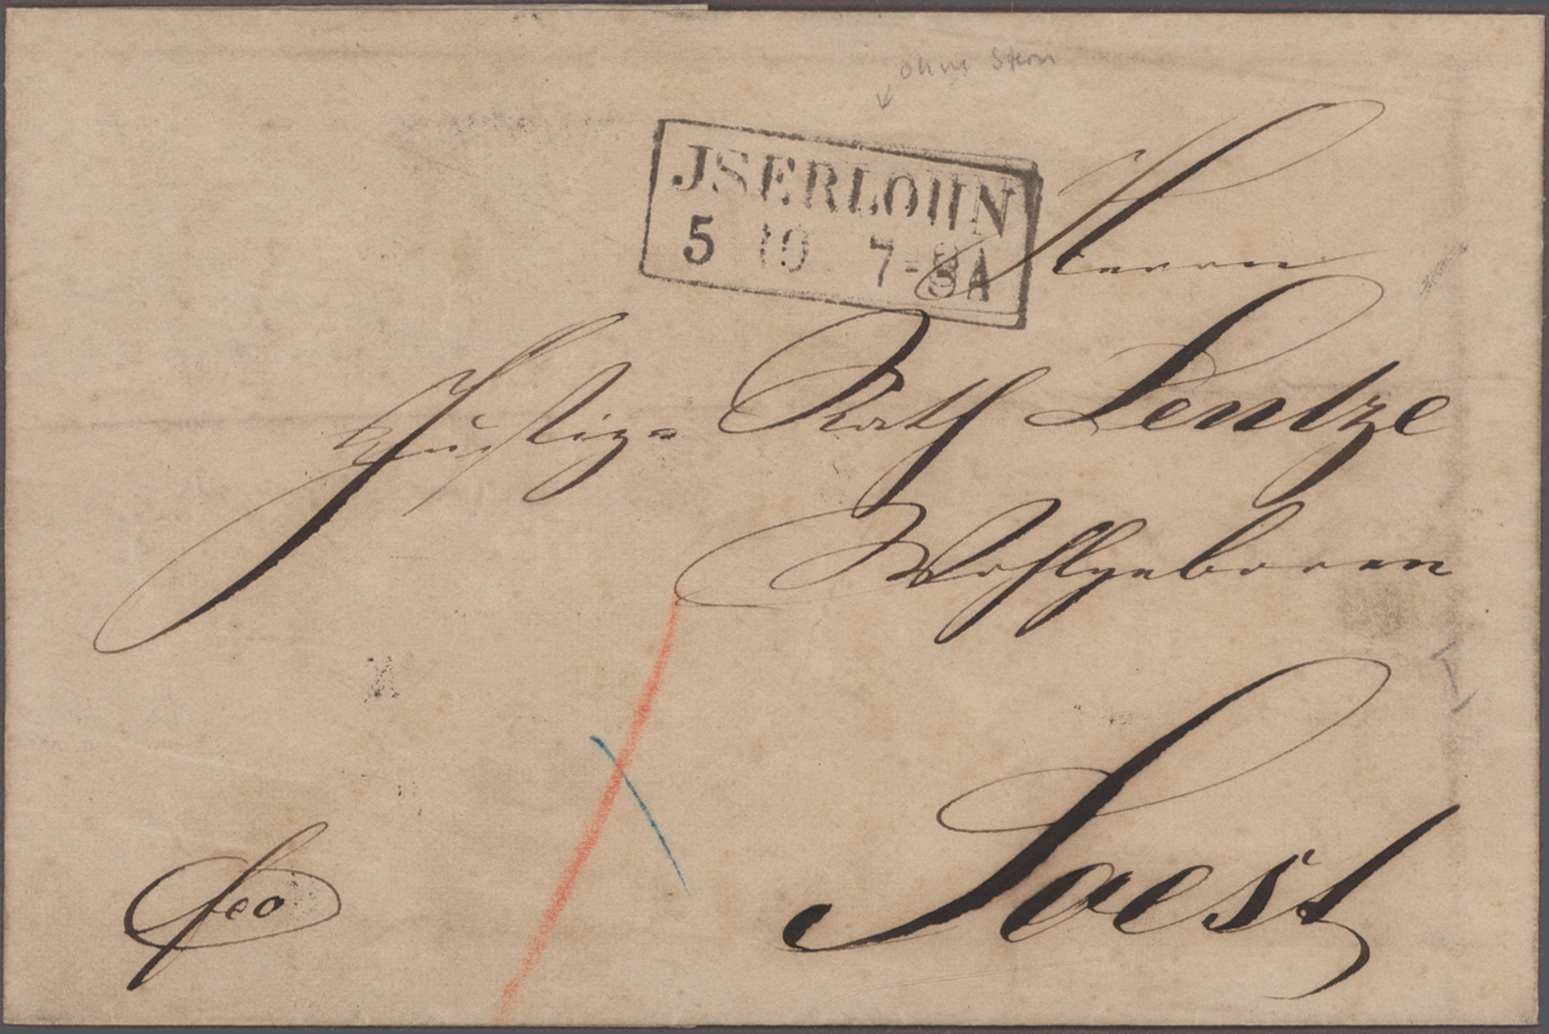 ohne Stern
JSERLOHN
5 10 7-8A
Herrn
Justiz= Rath Lentze
Wohlgeboren
Soest
fco